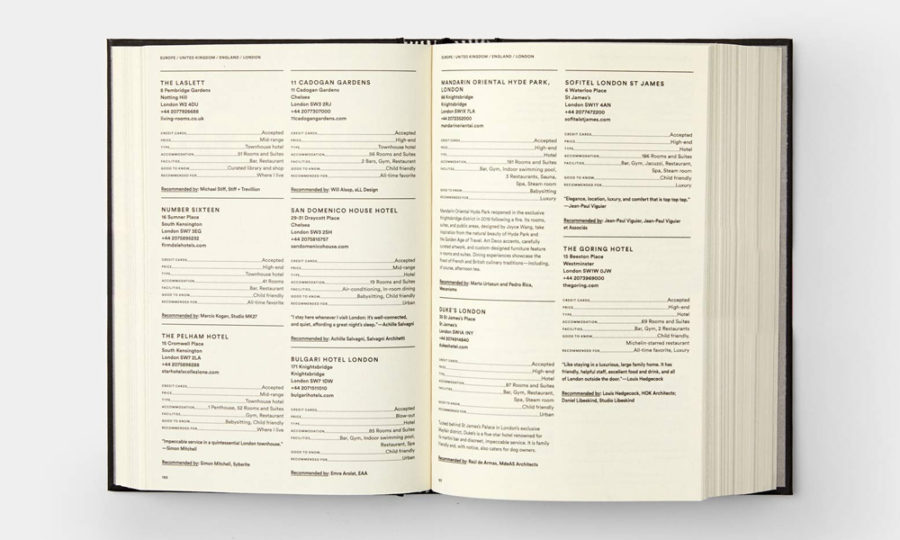 EUROPE / UNITED KINGDOM / ENGLAND / LONDON
THE LASLETT
8 Pembridge Gardens
Notting Hill
London W2 4DU
+44 2077926688
living-rooms.co.uk
CREDIT CARDS Accepted
PRICE Mid-range
TYPE Townhouse hotel
ACCOMMODATION 51 Rooms and Suites
FACILITIES Bar, Restaurant
GOOD TO KNOW Curated library and shop
RECOMMENDED FOR Where I live
Recommended by: Michael Stiff, Stiff + Trevillion
NUMBER SIXTEEN
16 Sumner Place
South Kensington
London SW7 3EG
+44 2075895232
firmdalehotels.com
CREDIT CARDS Accepted
PRICE High-end
TYPE Townhouse hotel
ACCOMMODATION 41 Rooms
FACILITIES Bar, Restaurant
GOOD TO KNOW Child friendly
RECOMMENDED FOR All-time favorite
Recommended by: Marcio Kogan, Studio MK27
THE PELHAM HOTEL
15 Cromwell Place
South Kensington
London SW7 2LA
+44 2075898288
starhotelscollezione.com
CREDIT CARDS Accepted
PRICE Mid-range
TYPE Townhouse hotel
ACCOMMODATION 1 Penthouse, 52 Rooms and Suites
FACILITIES Gym, Restaurant
GOOD TO KNOW Babysitting, Child friendly
RECOMMENDED FOR Where I live
"Impeccable service in a quintessential London townhouse."
—Simon Mitchell
Recommended by: Simon Mitchell, Sybarite
11 CADOGAN GARDENS
11 Cadogan Gardens
Chelsea
London SW3 2RJ
+44 2077307000
11cadogangardens.com
CREDIT CARDS Accepted
PRICE High-end
TYPE Townhouse hotel
ACCOMMODATION 56 Rooms and Suites
FACILITIES 2 Bars, Gym, Restaurant
GOOD TO KNOW Child friendly
RECOMMENDED FOR All-time favorite
Recommended by: Will Alsop, aLL Design
SAN DOMENICO HOUSE HOTEL
29-31 Draycott Place
Chelsea
London SW3 2SH
+44 2075815757
sandomenicohouse.com
CREDIT CARDS Accepted
PRICE Mid-range
TYPE Hotel
ACCOMMODATION 19 Rooms and Suites
FACILITIES Air-conditioning, In-room dining
GOOD TO KNOW Babysitting, Child friendly
RECOMMENDED FOR Urban
"I stay here whenever I visit London: it's well-connected,
and quiet, affording a great night's sleep."—Achille Salvagni
Recommended by: Achille Salvagni, Salvagni Architetti
BULGARI HOTEL LONDON
171 Knightsbridge
Knightsbridge
London SW7 1DW
+44 2071511010
bulgarihotels.com
CREDIT CARDS Accepted
PRICE Blow-out
TYPE Hotel
ACCOMMODATION 85 Rooms and Suites
FACILITIES Bar, Gym, Indoor swimming pool,
Restaurant, Spa
GOOD TO KNOW Child friendly
RECOMMENDED FOR Urban
Recommended by: Emre Arolat, EAA
EUROPE / UNITED KINGDOM / ENGLAND / LONDON
MANDARIN ORIENTAL HYDE PARK,
LONDON
66 Knightsbridge
Knightsbridge
London SW1X 7LA
+44 2072352000
mandarinoriental.com
CREDIT CARDS Accepted
PRICE High-end
TYPE Hotel
ACCOMMODATION 181 Rooms and Suites
FACILITIES Bar, Gym, Indoor swimming pool,
3 Restaurants, Sauna,
Spa, Steam room
GOOD TO KNOW Babysitting
RECOMMENDED FOR Luxury
Mandarin Oriental Hyde Park reopened in the exclusive
Knightsbridge district in 2019 following a fire. Its rooms,
suites, and public areas, designed by Joyce Wang, take
inspiration from the natural beauty of Hyde Park and
the Golden Age of Travel. Art Deco accents, carefully
curated artwork, and custom designed furniture feature
in rooms and suites. Dining experiences showcase the
best of French and British culinary traditions—including,
of course, afternoon tea.
Recommended by: Marta Urtasun and Pedro Rica,
Mecanismo
DUKE'S LONDON
35 St James's Place
St James's
London SW1A 1NY
+44 2074914840
dukeshotel.com
CREDIT CARDS Accepted
PRICE High-end
TYPE Hotel
ACCOMMODATION 87 Rooms and Suites
FACILITIES Bar, Gym, Restaurant,
Spa, Steam room
GOOD TO KNOW Child friendly
RECOMMENDED FOR Urban
Tucked behind St James's Palace in London's exclusive
Mayfair district, Duke's is a five star hotel renowned for
its martini bar and discreet, impeccable service. It is family
friendly and, with notice, also caters for dog owners.
Recommended by: Raúl de Armas, MdeAS Architects
SOFITEL LONDON ST JAMES
6 Waterloo Place
St James's
London SW1Y 4AN
+44 2077472200
sofitelstjames.com
CREDIT CARDS Accepted
PRICE High-end
TYPE Hotel
ACCOMMODATION 186 Rooms and Suites
FACILITIES Bar, Gym, Jacuzzi, Restaurant,
Spa, Steam room
GOOD TO KNOW Child friendly
RECOMMENDED FOR Luxury
"Elegance, location, luxury, and comfort that is top top top."
—Jean-Paul Viguier
Recommended by: Jean-Paul Viguier, Jean-Paul Viguier
et Associés
THE GORING HOTEL
15 Beeston Place
Westminster
London SW1W 0JW
+44 2073969000
thegoring.com
CREDIT CARDS Accepted
PRICE High-end
TYPE Hotel
ACCOMMODATION 69 Rooms and Suites
FACILITIES Bar, Gym, 2 Restaurants
GOOD TO KNOW Child friendly,
Michelin-starred restaurant
RECOMMENDED FOR All-time favorite, Luxury
"Like staying in a luxurious, large family home. It has
friendly, helpful staff, excellent food and drink, and all
of London outside the door."—Louis Hedgecock
Recommended by: Louis Hedgecock, HOK Architects;
Daniel Libeskind, Studio Libeskind